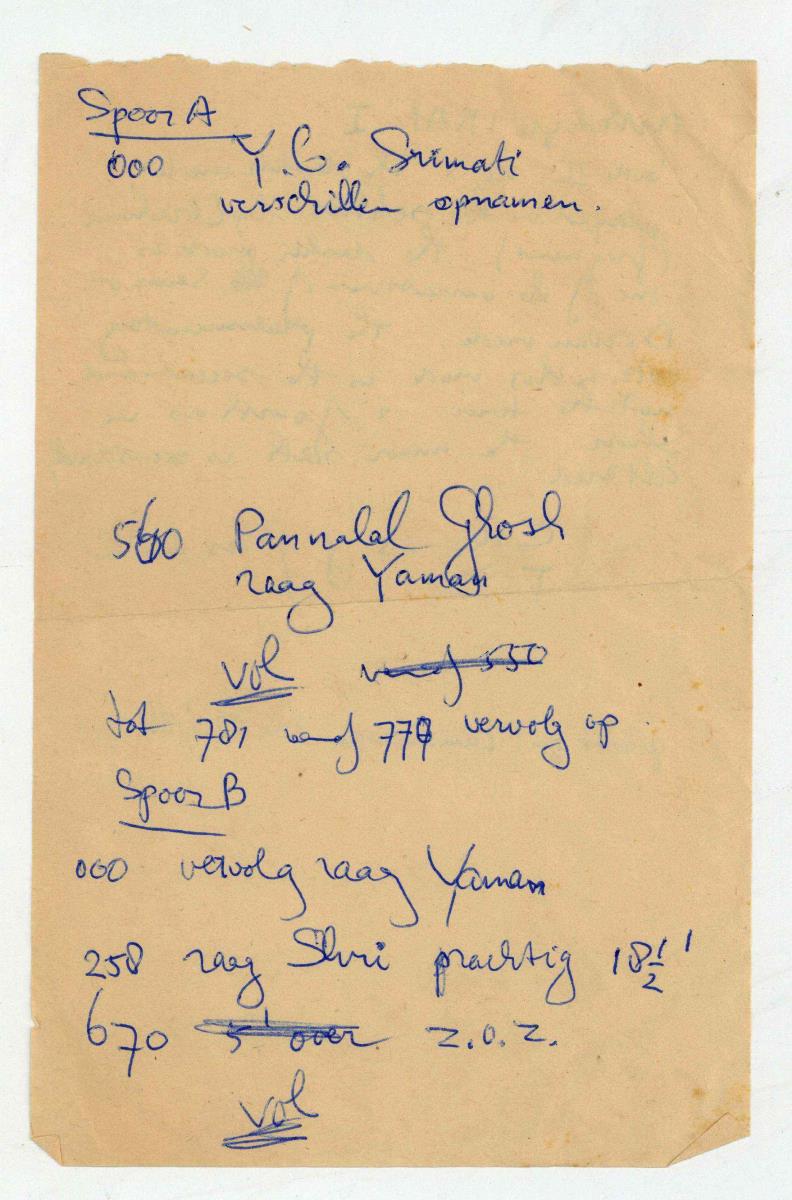 Spoor A
000 Y.G. Srimati
verschillen opnamen.
560 Pannalal Ghosh
raag Yaman
vol vanaf 550
tot 781 vanaf 777 vervolg op
Spoor B
000 vervolg raag Yaman
258 raag Shri prachtig 18 1/2 '
670 5' over z.o.z.
vol